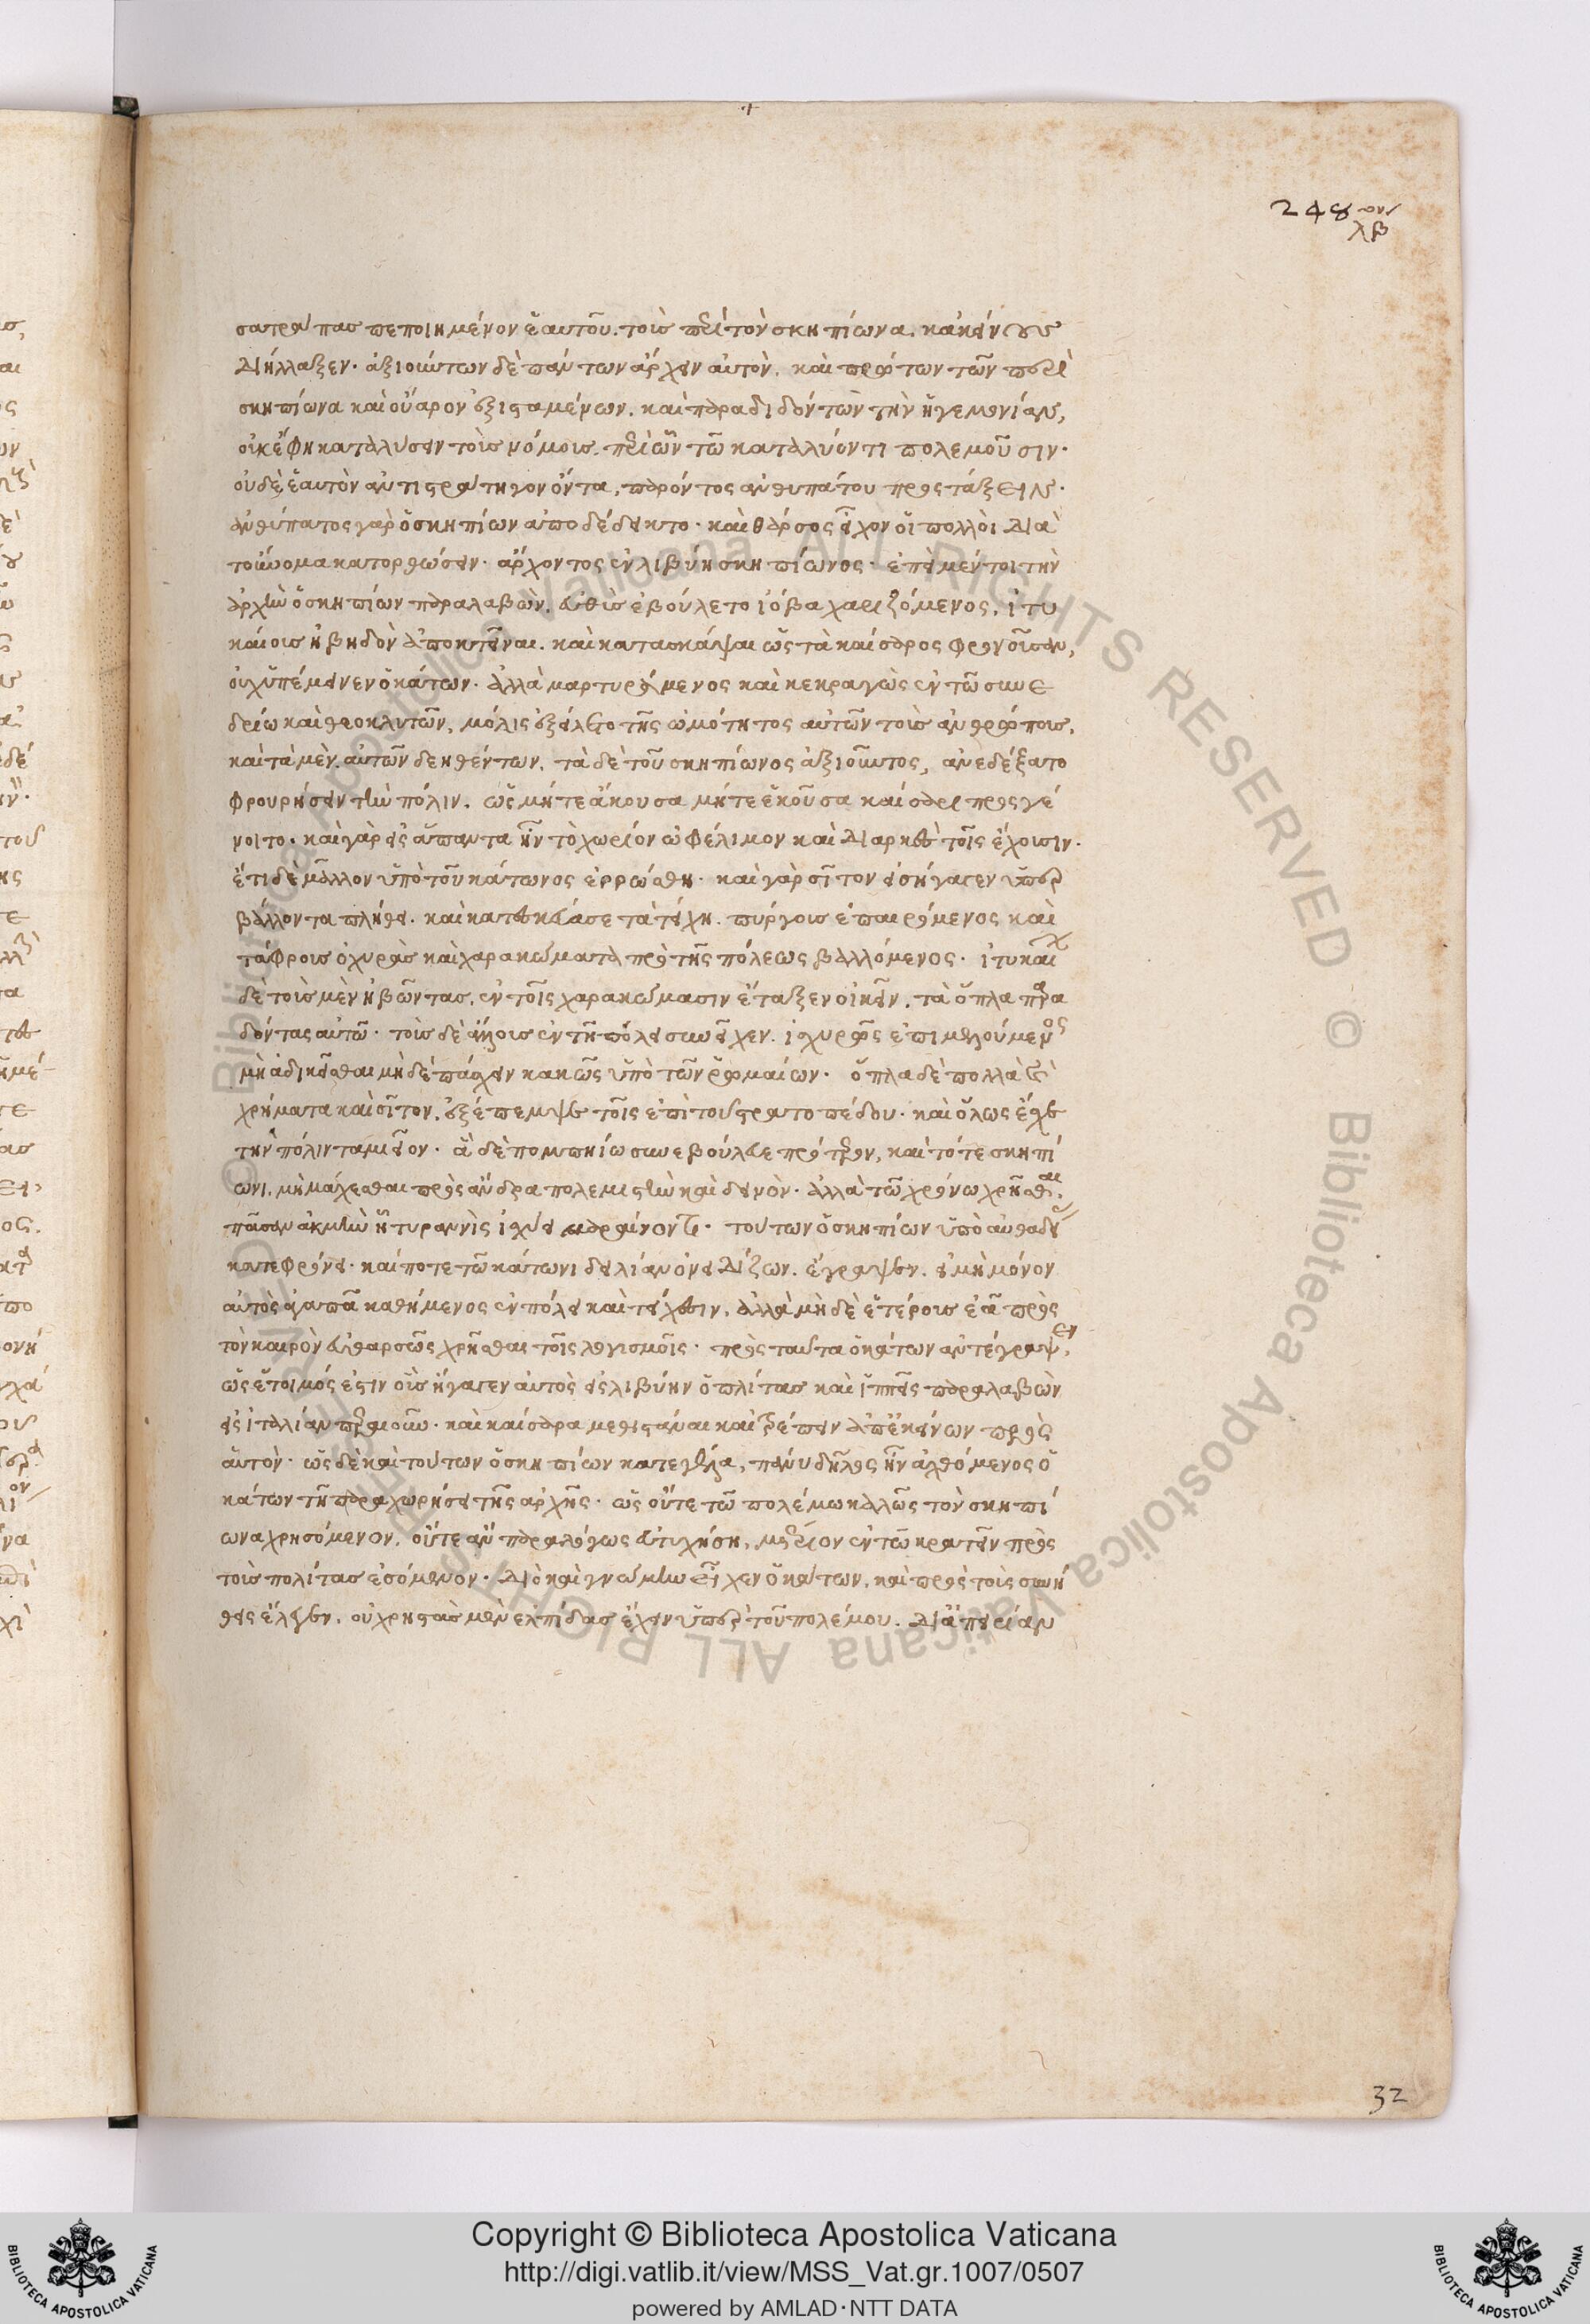 248
λβ
σατράπας πεποιημένον ἑαυτοῦ. τοὺς περὶ τὸν σκηπίωνα. κἀκείνους
διήλλαξεν· ἀξιούντων δὲ πάντων ἄρχειν αὐτὸν. καὶ πρώτων τῶν περὶ
σκηπίωνα καὶ οὔαρον ἐξισταμένων. καὶ παραδιδόντων τὴν ἡγεμονίαν,
οὐκ ἔφη καταλύσειν τοὺς νόμους. περὶ ὧν τῶ καταλύοντι πολεμοῦσιν·
οὐδὲ ἑαυτὸν ἀντιστράτηγον ὄντα, παρόντος ἀνθυπάτου προστάξειν·
ἀνθύπατος γὰρ ὁ σκηπίων ἀποδέδεικτο· καὶ θάρσος εἶχον οἱ πολλοὶ διὰ
τοὔνομα κατορθώσειν· ἄρχοντος ἐν λιβύη σκηπίωνος· ἐπεὶ μέντοι τὴν
ἀρχὴν ὁ σκηπίων παραλαβὼν, εὐθὺς ἐβούλετο ἰόβα χαριζόμενος, ἰτυ
καίους ἡβηδὸν ἀποκτεῖναι. καὶ κατασκάψαι ὡς τὰ καίσαρος φρονοῦσαν,
οὐχ ὑπέμεινεν ὁ κάτων· ἀλλὰ μαρτυρόμενος καὶ κεκραγὼς ἐν τῶ συνε
δρίω καὶ θεοκλυτῶν, μόλις ἐξείλετο τῆς ὠμότητος αὐτῶν τοὺς ἀνθρώπους,
καὶ τὰ μὲν αὐτῶν δεηθέντων. τὰ δὲ τοῦ σκηπίωνος ἀξιοῦντος, ἀνεδέξατο
φρουρήσειν τὴν πόλιν. ὡς μήτε ἄκουσα μήτε ἑκοῦσα καίσαρι προσγέ
νοιτο. καὶ γὰρ εἰς ἅπαντα ἦν τὸ χωρίον ὠφέλιμον καὶ διαρκὲς τοῖς ἔχουσιν·
ἔτι δὲ μᾶλλον ὑπὸ τοῦ κάτωνος ἐρρώσθη· καὶ γὰρ σῖτον εἰσήγαγεν ὑπερ
βάλλοντα πλήθει. καὶ κατεσκεύασε τὰ τείχη. πύργους ἐπαιρόμενος καὶ
τάφρους ὀχυρὰς καὶ χαρακώματα πρὸ τῆς πόλεως βαλλόμενος· ἰτυκαί
δὲ τοὺς μὲν ἡβῶντας, ἐν τοῖς χαρακώμασιν ἔταξεν οἰκεῖν, τὰ ὅπλα παρα
δόντας αὐτῶ· τοὺς δὲ ἄλλους ἐν τῆ πόλει συνεῖχεν. ἰσχυρῶς ἐπιμελούμενος
μὴ ἀδικεῖσθαι μηδὲ πάσχειν κακῶς ὑπὸ τῶν ῥωμαίων· ὅπλα δὲ πολλὰ καὶ
χρήματα καὶ σῖτον, ἐξέπεμψε τοῖς ἐπὶ τοῦ στρατοπέδου· καὶ ὅλως ἔσχε
τὴν πόλιν ταμιεῖον· ἃ δὲ πομπηίω συνεβούλευε πρότερον, καὶ τότε σκηπί
ωνι, μὴ μάχεσθαι πρὸς ἄνδρα πολεμιστὴν καὶ δεινὸν· ἀλλὰ τῶ χρόνω χρῆσθαι,
πᾶσαν ἀκμὴν ἡ τυραννὶς ἰσχύει μαραίνοντι· τούτων ὁ σκηπίων ὑπὸ αὐθαδεί
κατεφρόνει· καί ποτε τῶ κάτωνι δειλίαν ὀνειδίζων. ἔγραψεν, εἰ μὴ μόνον
αὐτὸς ἀγαπᾶ καθήμενος ἐν πόλει καὶ τείχεσιν, ἀλλὰ μὴ δὲ ἑτέρους ἐᾶ πρὸς
τὸν καιρὸν εὐθαρσῶς χρῆσθαι τοῖς λογισμοῖς· πρὸς ταῦτα ὁ κάτων ἀντέγραψεν,
ὡς ἕτοιμός ἐστιν οὓς ἤγαγεν αὐτὸς εἰς λιβύην ὁπλίτας καὶ ἱππεῖς παραλαβὼν
εἰς ἰταλίαν περαιοῦν· καὶ καίσαρα μεθιστάναι καὶ τρέπειν ἀπ' ἐκείνων πρὸς
αὑτὸν· ὡς δὲ καὶ τούτων ὁ σκηπίων κατεγέλα, πάνυ δῆλος ἦν ἀχθόμενος ὁ
κάτων τῆ παραχωρήσει τῆς ἀρχῆς· ὡς οὔτε τῶ πολέμω καλῶς τὸν σκηπί
ωνα χρησόμενον, οὔτε ἂν παραλόγως εὐτυχήση, μέτριον ἐν τῶ κρατεῖν πρὸς
τοὺς πολίτας ἐσόμενον· διὸ καὶ γνώμην εἶχεν ὁ κάτων, καὶ πρὸς τοὺς συνή
θεις ἔλεγεν, οὐ χρηστὰς μὲν ἐλπίδας ἔχειν ὑπὲρ τοῦ πολέμου. δι' ἀπειρίαν
32
© Biblioteca Apostolica Vaticana ALL RIGHTS RESERVED © Biblioteca Apostolica Vaticana ALL RIGHTS RESERVED
Copyright © Biblioteca Apostolica Vaticana
http://digi.vatlib.it/view/MSS_Vat.gr.1007/0507
powered by AMLAD·NTT DATA
BIBLIOTECA APOSTOLICA VATICANA
BIBLIOTECA APOSTOLICA VATICANA